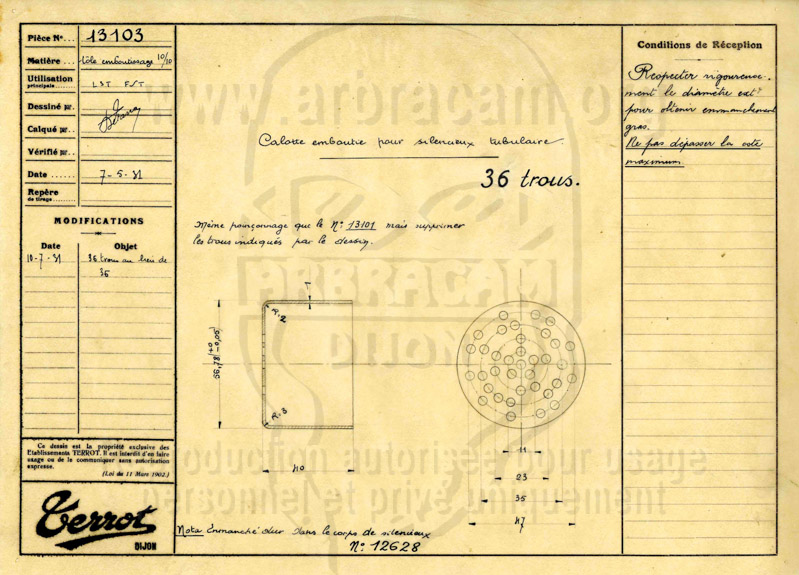 Pièce N°... 13103
Matière... tôle emboutissage 10/10
Utilisation principale... LST FST
Dessiné par.
Calqué par..
Vérifié par..
Date ...... 7-5-31
Repère de tirage........
MODIFICATIONS
Date Objet
10-7-31 36 trous au lieu de
35
Ce dessin est la propriété exclusive des
Etablissements TERROT. Il est interdit d'en faire
usage ou de le communiquer sans autorisation
expresse.
(Loi du 11 Mars 1902.)
Terrot
DIJON
Calotte emboutie pour silencieux tubulaire.
36 trous.
Même poinçonnage que le N° 13101 mais supprimer
les trous indiqués par le dessin.
1
R.2
R.3
40
11
23
35
47
Nota Emmanché dur dans le corps de silencieux
N° 12628
Conditions de Réception
Respecter rigoureuse-
ment le diamètre extr
pour obtenir emmanchement
gras.
Ne pas dépasser la cote
maximum
www.arbracam.org
ARBRACAM
DIJON
Reproduction autorisée pour usage
personnel et privé uniquement